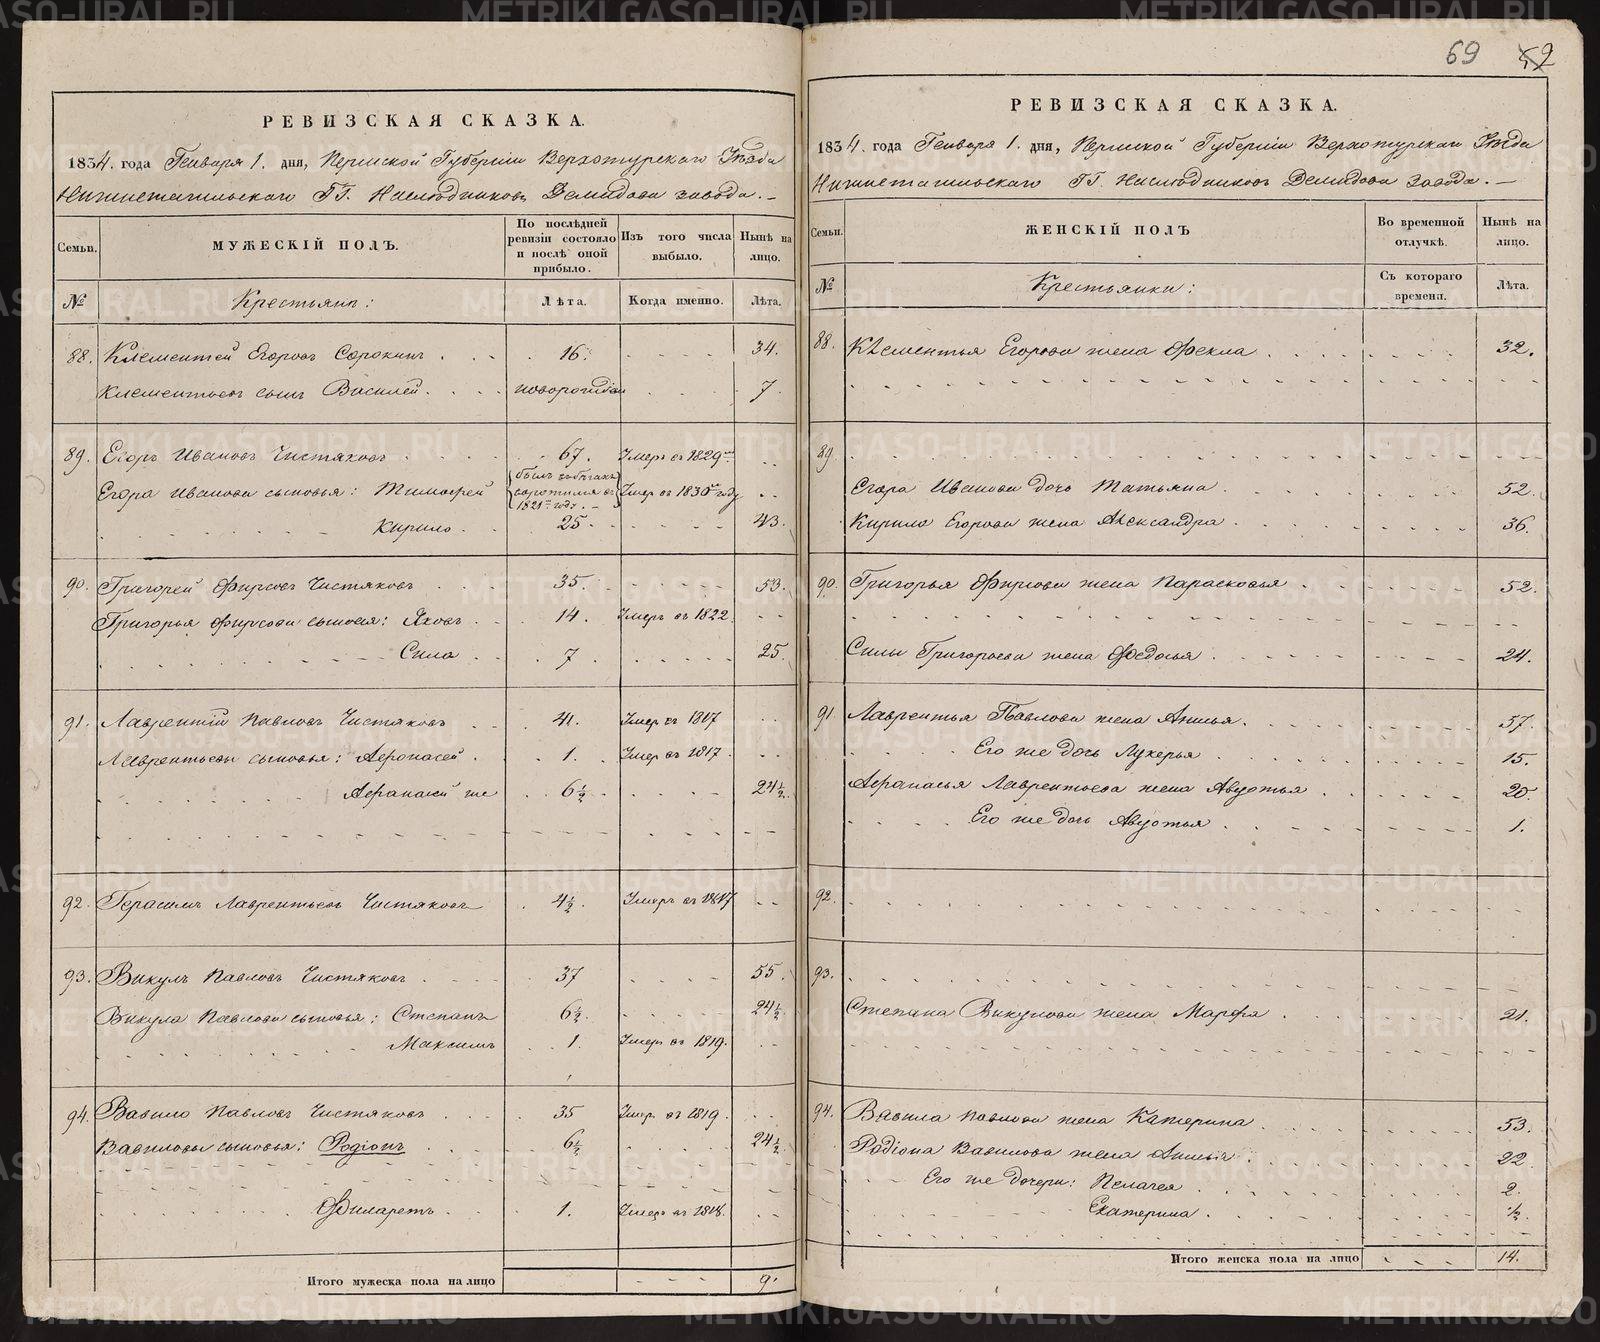 69 52
РЕВИЗСКАЯ СКАЗКА.
1834. года Генваря 1. дня, Пермской Губернiи Верхотурскаго Уѣзда
Нижнетагильскаго ГГ. Наслѣдниковъ Демидова завода. –
Семьи. МУЖЕСКIЙ ПОЛЪ. По послѣдней ревизiи состояло и послѣ оной прибыло. Изъ того числа выбыло. Нынѣ на лицо.
№ Крестьянъ: Лѣта. Когда именно. Лѣта.
88. Клементей Егоровъ Сорокинъ 16. 34.
Клементьевъ сынъ Василей. новорожден 7.
89. Егоръ Ивановъ Чистяковъ 67. Умеръ въ 1829
Егора Иванова сыновья: Тимофей былъ въ бѣгахъ воротился въ 1821 году. – Умер въ 1830 году
Кирило 25 43.
90. Григорей Фирсовъ Чистяковъ 35. 53.
Григорья Фирсова сыновья: Яковъ 14. Умеръ въ 1822.
Сила 7. 25.
91. Лаврентiй Павловъ Чистяковъ 41. Умер въ 1817
Лаврентьевы сыновья: Афонасей 1. Умер въ 1817.
Афанасей же 6½ 24½
92. Герасимъ Лаврентьевъ Чистяковъ 4½ Умеръ въ 1817
93. Викулъ Павловъ Чистяковъ 37 55.
Викула Павлова сыновья: Степанъ 6½ 24½
Максимъ 1. Умеръ въ 1819.
94. Вавило Павловъ Чистяковъ 35 Умер. въ 1819.
Вавиловы сыновья: Родiонъ 6½ 24½
Филаретъ 1. Умеръ въ 1818.
Итого мужеска пола на лицо 9.
РЕВИЗСКАЯ СКАЗКА.
1834. года Генваря 1. дня, Пермской Губернiи Верхотурскаго Уѣзда
Нижнетагильскаго ГГ. Наслѣдниковъ Демидова завода. –
Семьи. ЖЕНСКIЙ ПОЛЪ Во временной отлучкѣ. Нынѣ на лицо.
№ Крестьянки: Съ котораго времени. Лѣта.
88. Клементья Егорова жена Фекла 32.
89.
Егора Иванова дочь Татьяна 52.
Кирило Егорова жена Александра 36.
90. Григорья Фирсова жена Парасковья 52.
Силы Григорьева жена Федосья 24.
91 Лаврентья Павлова жена Анисья. 57.
Его же дочь Лукерья 15.
Афанасья Лаврентьева жена Авдотья 20.
Его же дочь Авдотья 1.
92.
93.
Степана Викулова жена Марфа 21.
94. Вавила Павлова жена Катерина 53.
Родiона Вавилова жена Анисья 22
Его же дочери: Пелагея 2.
Екатерина ½
Итого женска пола на лицо 14.
METRIKI.GASO-URAL.RU